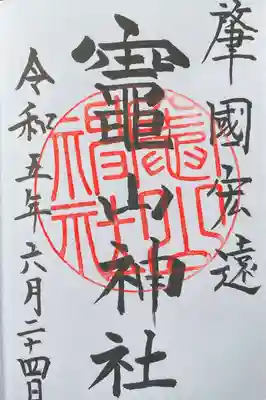 肇國宏遠
竈山神社
竈山
神社
令和五年六月二十四日